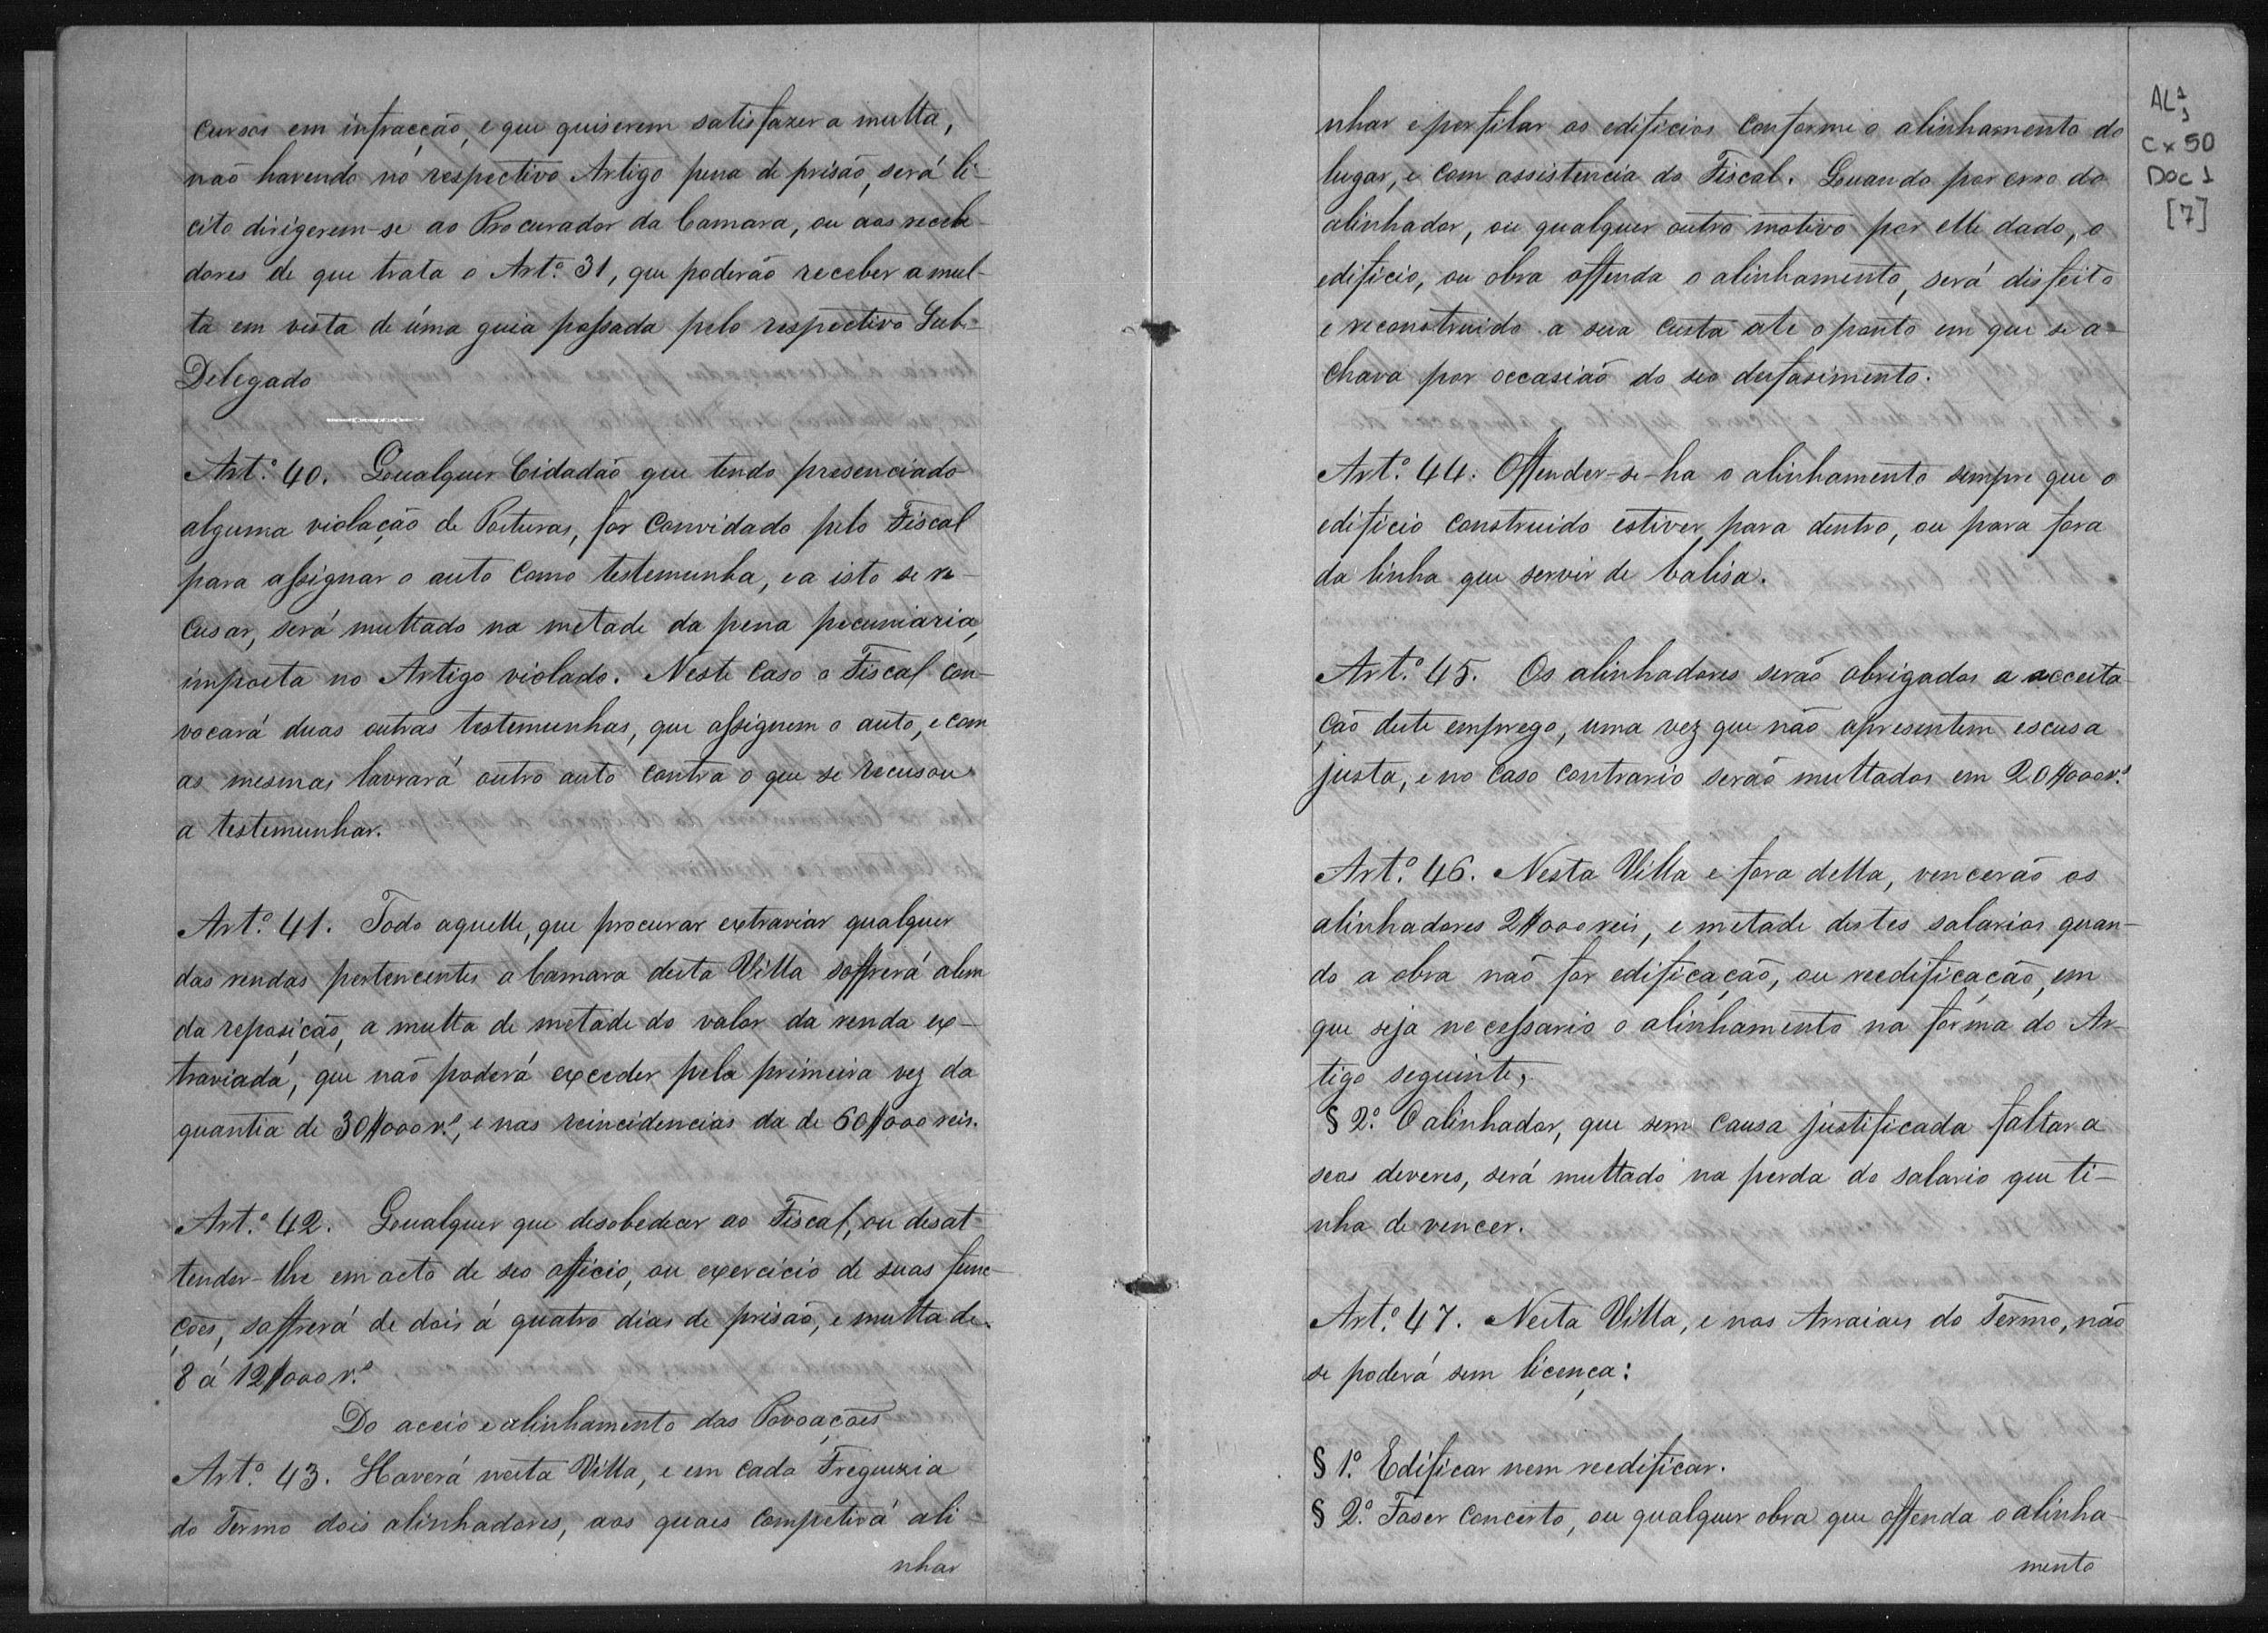 cursos em infracção, e que quiserem satisfazer a multa,
não havendo no respectivo Artigo pena de prisão, será li-
cito dirigerem-se ao Procurador da Camara, ou aos recebe-
dores de que trata o Artº. 31, que poderão receber a mul-
ta em vista de úma guia passada pelo respectivo Sub-
Delegado
Artº. 40. Qualquer Cidadão que tendo presenciado
alguma violação de Posturas, for convidado pelo Fiscal
para assignar o auto como testemunha, e a isto se re-
cusar, será multado na metade da pena pecuniaria,
imposta no Artigo violado. Neste caso o Fiscal con-
vocará duas outras testemunhas, que assignem o auto, e com
as mesmas lavrará outro auto contra o que se recusou
a testemunhar.
Artº. 41. Todo aquelle, que procurar extraviar qualquer
das rendas pertencentes a Camara desta Villa soffrerá alem
da reposição, a multa de metade do valor da renda ex-
traviada, que não poderá exceder pela primeira vez da
quantia de 30$000 rs., e nas reincidencias da de 60$000 reis.
Artº. 42. Qualquer que desobedecer ao Fiscal, ou desat-
tender-lhe em acto de seo officio, ou exercicio de suas func-
ções, soffrerá de dois á quatro dias de prisão, e multa de
8 á 12$000 rs.
Do aceio e alinhamento das Povoações
Artº. 43. Haverá nesta Villa, e em cada Freguezia
do Termo dois alinhadores, aos quaes competirá ali-
nhar
nhar e perfilar os edificios conforme o alinhamento do
lugar, e com assistencia do Fiscal. Quando por erro do
alinhador, ou qualquer outro motivo por elle dado, o
edificio, ou obra offenda o alinhamento, será disfeito
e reconstruido a sua custa ate o ponto em que se a-
chava por occasião do seo desfasimento.
Artº. 44. Offender-se-ha o alinhamento sempre que o
edificio construido estiver para dentro, ou para fora
da linha que servir de balisa.
Artº. 45. Os alinhadores serão obrigados a acceita-
ção deste emprego, uma vez que não apresentem escusa
justa, e no caso contrario serão multados em 20$000 rs.
Artº. 46. Nesta Villa e fora della, vencerão os
alinhadores 2$000 reis, e metade destes salarios quan-
do a obra não for edificação, ou reedificação, em
que seja necessario o alinhamento na forma do Ar-
tigo seguinte,
§ 2º. O alinhador, que sem causa justificada faltar a
seos deveres, será multado na perda do salario que ti-
nha de vencer.
Artº. 47. Nesta Villa, e nos Arraiaes do Termo, não
se poderá sem licença:
§ 1º. Edificar nem reedificar.
§ 2º. Faser concerto, ou qualquer obra que offenda o alinha-
mento
Cx 50
Doc 1
[7]